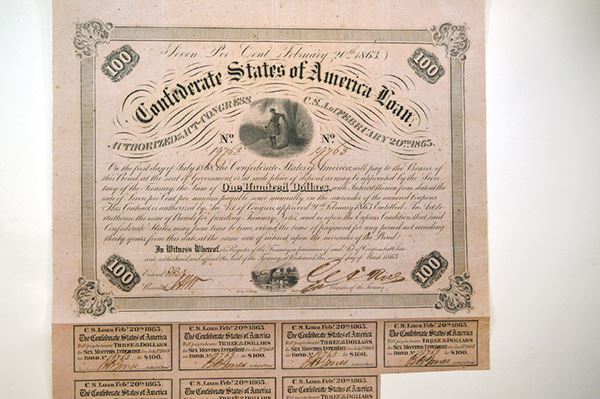 Seven Per Cent February 20th 1863.
100 100
Confederate States of America Loan.
AUTHORIZED BY ACT OF CONGRESS C.S.A. OF FEBRUARY 20TH 1863.
No. No.
On the first day of July 1868 the Confederate States of America will pay to the Bearer of
this Bond at the seat of Government or at such place of deposit as may be appointed by the Secre-
tary of the Treasury, the Sum of One Hundred Dollars, with Interest thereon from date at the
rate of Seven per Cent per annum payable semi annually, on the surrender of the annexed Coupons.
This Contract is authorized by An Act of Congress approved 20th February 1863 Entitled An Act to
authorize the issue of Bonds for funding Treasury Notes, and is upon the Express Condition that said
Confederate States may from time to time, extend the time of payment for any period not exceeding
thirty years from this date at the same rate of interest upon the renewal of the Bond.
In Witness Whereof, the Register of the Treasury in pursuance of said Act of Congress hath here-
unto set his hand and affixed the Seal of the Treasury, at Richmond this day of March 1863
Entered
Recorded
Register of the Treasury
100 100
C.S. Loan, Feby. 20th 1863. C.S. Loan, Feby. 20th 1863. C.S. Loan, Feby. 20th 1863. C.S. Loan, Feby. 20th 1863.
The Confederate States of America The Confederate States of America The Confederate States of America The Confederate States of America
Will pay to bearer THREE 50/100 DOLLARS Will pay to bearer THREE 50/100 DOLLARS Will pay to bearer THREE 50/100 DOLLARS Will pay to bearer THREE 50/100 DOLLARS
for SIX MONTHS INTEREST for SIX MONTHS INTEREST for SIX MONTHS INTEREST for SIX MONTHS INTEREST
on BOND No. for $100. on BOND No. for $100. on BOND No. for $100. on BOND No. for $100.
C.S. Loan, Feby. 20th 1863. C.S. Loan, Feby. 20th 1863. C.S. Loan, Feby. 20th 1863.
The Confederate States of America The Confederate States of America The Confederate States of America